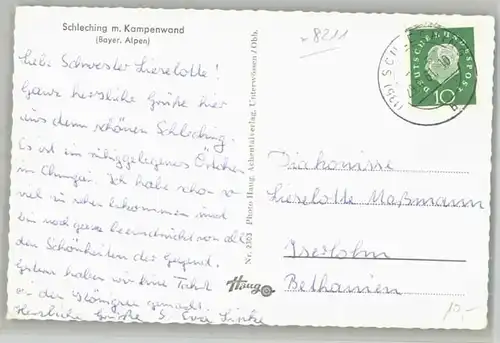 Schleching m. Kampenwand
(Bayer. Alpen)
Liebe Schwester Lieselotte!
Ganz herzliche Grüße hier
aus dem schönen Schleching.
Es ist ein ruhig gelegenes Örtchen
im Chiemgau. Ich habe schon so
viel zu sehen bekommen und
bin noch ganz von all
den Schönheiten der Gegend.
Gestern haben wir eine Fahrt
zu den gemacht.
Herzliche Grüße S. Eva
Nr. 2503 Photo Haug, Achentalverlag, Unterwössen / Obb.
Haug
8211
DEUTSCHE BUNDESPOST
10
(13b) SCH
b
Diakonisse
Lieselotte Maßmann
Iserlohn
Bethanien